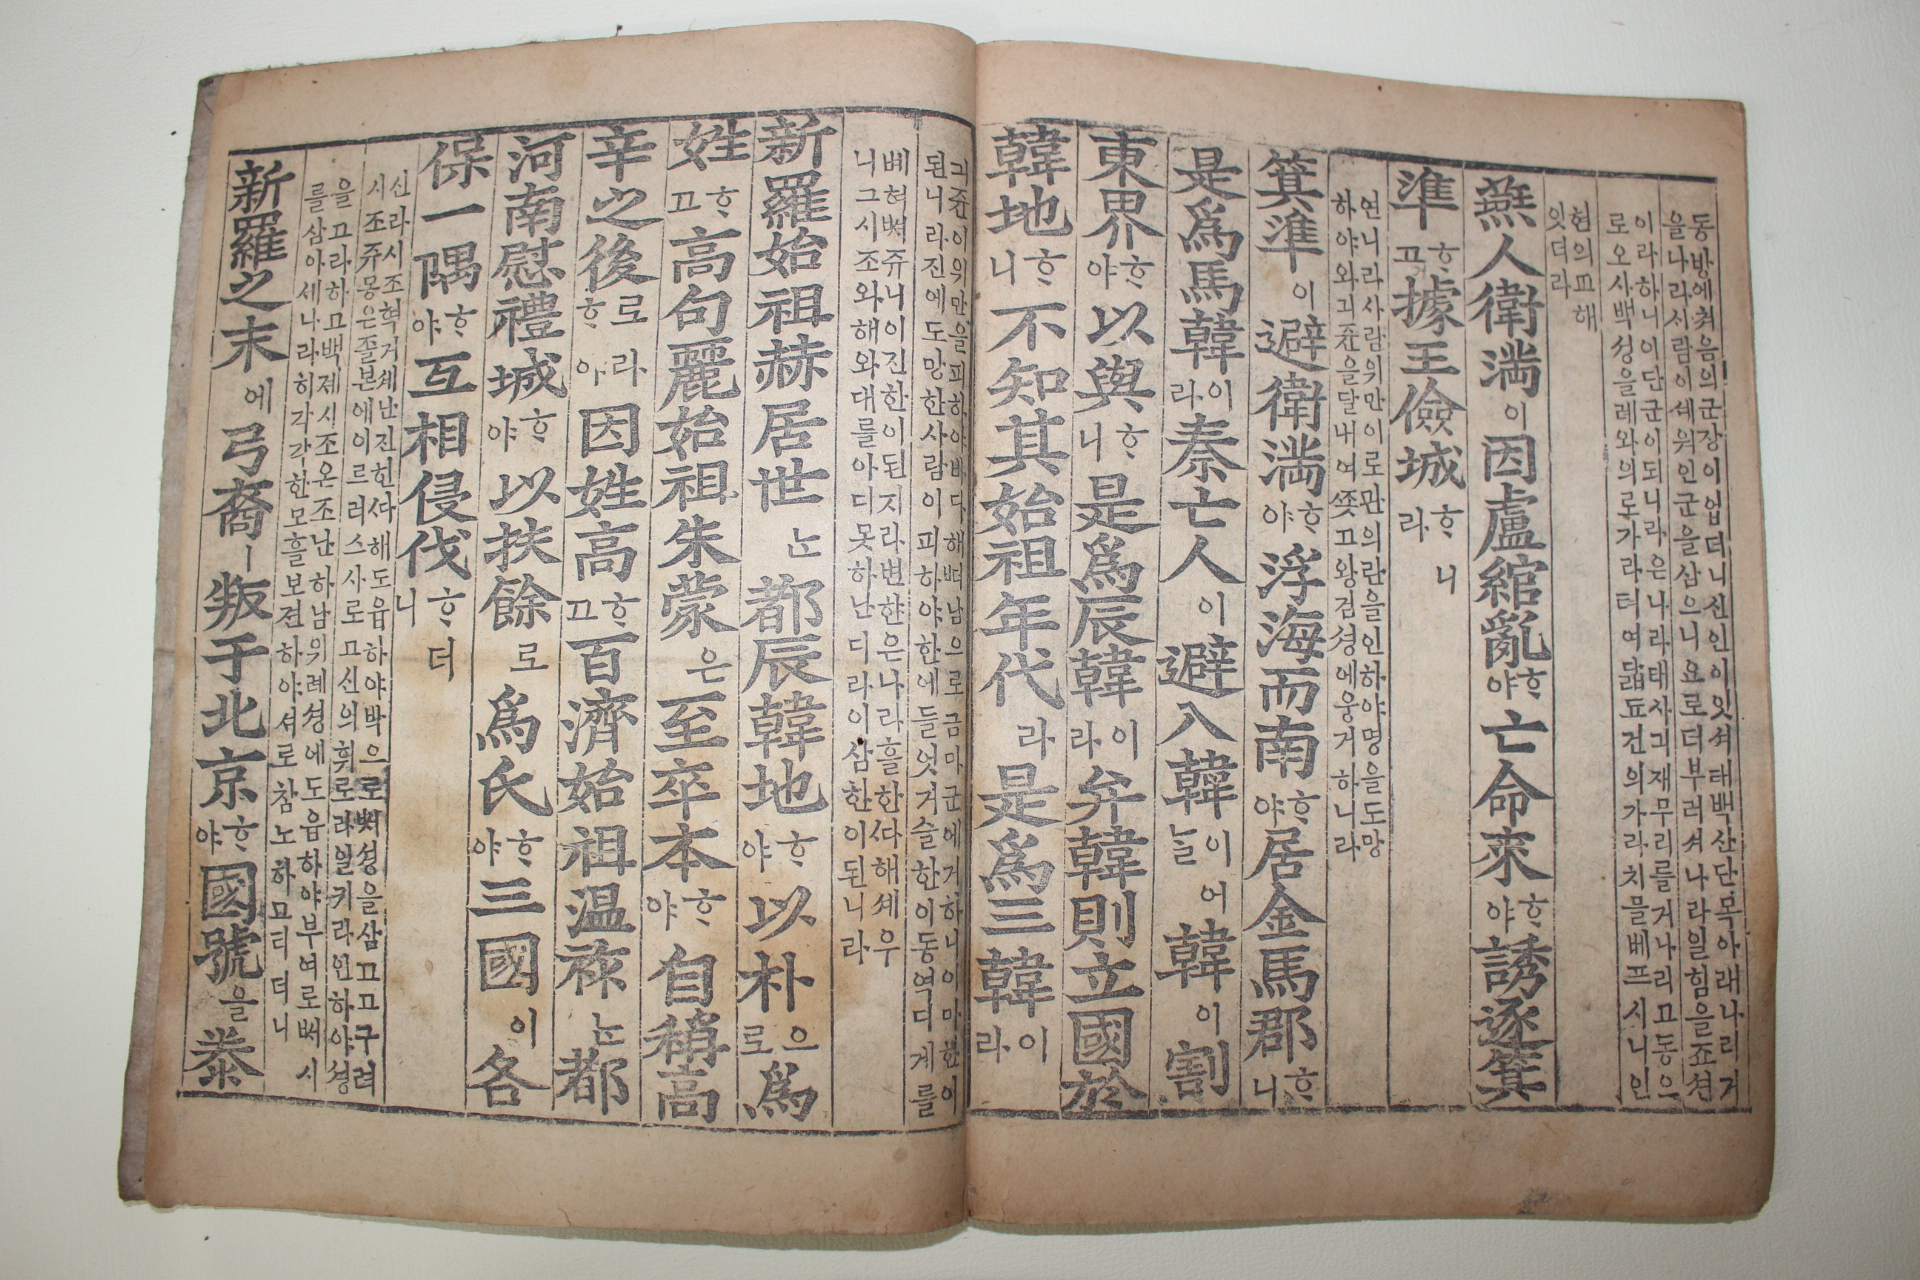 동방에처음의군장이업더니신인이잇셔태백산단목아래나리거
을나라사람이셰워인군을삼으니요로더부러셔나라일힘을죠션
이라하니이단군이되니라은나라태사긔재무리를거나리고동으
로오사백셩을례와의로가라텨여듧됴건의가라치믈베프시니인
현의교해
잇더라
燕人衛滿이因盧綰亂ᄒᆞ야亡命來ᄒᆞ야誘逐箕
準ᄒᆞ고據王儉城ᄒᆞ니라
연니라사람위만이로관의란을인하야명을도망
하야와긔쥰을달내여ᄶᅩᆺ고왕검셩에웅거하니라
箕準이避衛滿ᄒᆞ야浮海而南ᄒᆞ야居金馬郡ᄒᆞ니
是爲馬韓이라秦亡人이避入韓이어늘韓이割
東界ᄒᆞ야以與ᄒᆞ니是爲辰韓이라弁韓則立國於
韓地ᄒᆞ니不知其始祖年代라是爲三韓이라
긔쥰이위만을피하야바다해ᄯᅥ남으로금마군에거하니이마한이
된니라진에도망한사람이피하야한에들엇거슬한이동역디계를
베혀ᄡᅥ쥬니이진한이된지라변한은나라흘한ᄯᅡ해셰우
니그시조와해와대를아디못하난디라이삼한이된니라
新羅始祖赫居世ᄂᆞᆫ都辰韓地ᄒᆞ야以朴으로爲
姓ᄒᆞ고高句麗始祖朱蒙은至卒本ᄒᆞ야自稱高
辛之後로라ᄒᆞ야因姓高ᄒᆞ고百濟始祖温祚ᄂᆞᆫ都
河南慰禮城ᄒᆞ야以扶餘로爲氏ᄒᆞ야三國이各
保一隅ᄒᆞ야互相侵伐ᄒᆞ더니
신라시조혁거셰난진헌ᄯᅡ해도읍하야박으로ᄡᅥ셩을삼고고구려
시조쥬몽은졸본에이르러스사로고신의휘로라일키라인하야셩
을고라하고백졔시조온조난하남위례셩에도읍하야부여로ᄡᅥ시
를삼아셰나라히각각한모흘보젼하야셔로참노하고티더니
新羅之末에弓裔ㅣ叛于北京ᄒᆞ야國號을泰